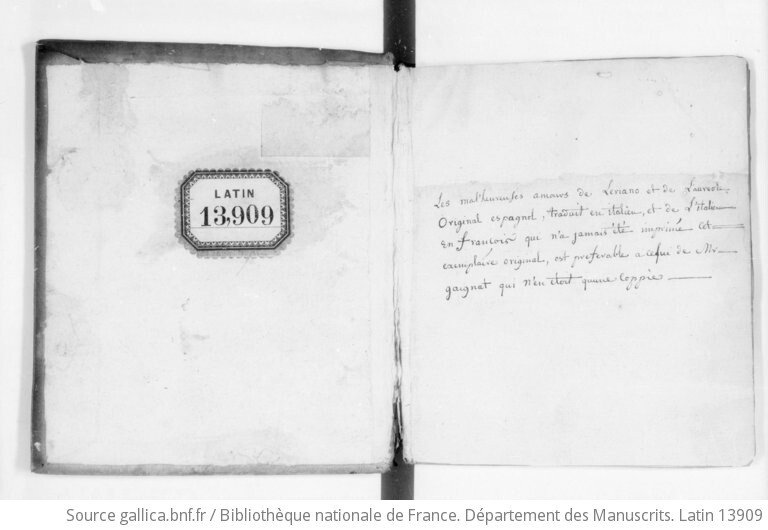 LATIN
13,909
Les malheureuses amours de Leriano et de Laureole.
Original espagnol, traduit en italien, et de L'italien
En francois qui n'a jamais été imprimé Cet
exemplaire original, est preferable a celui de Mr
gaignat qui n'en étoit qu'une Coppie
Source gallica.bnf.fr / Bibliothèque nationale de France. Département des Manuscrits. Latin 13909